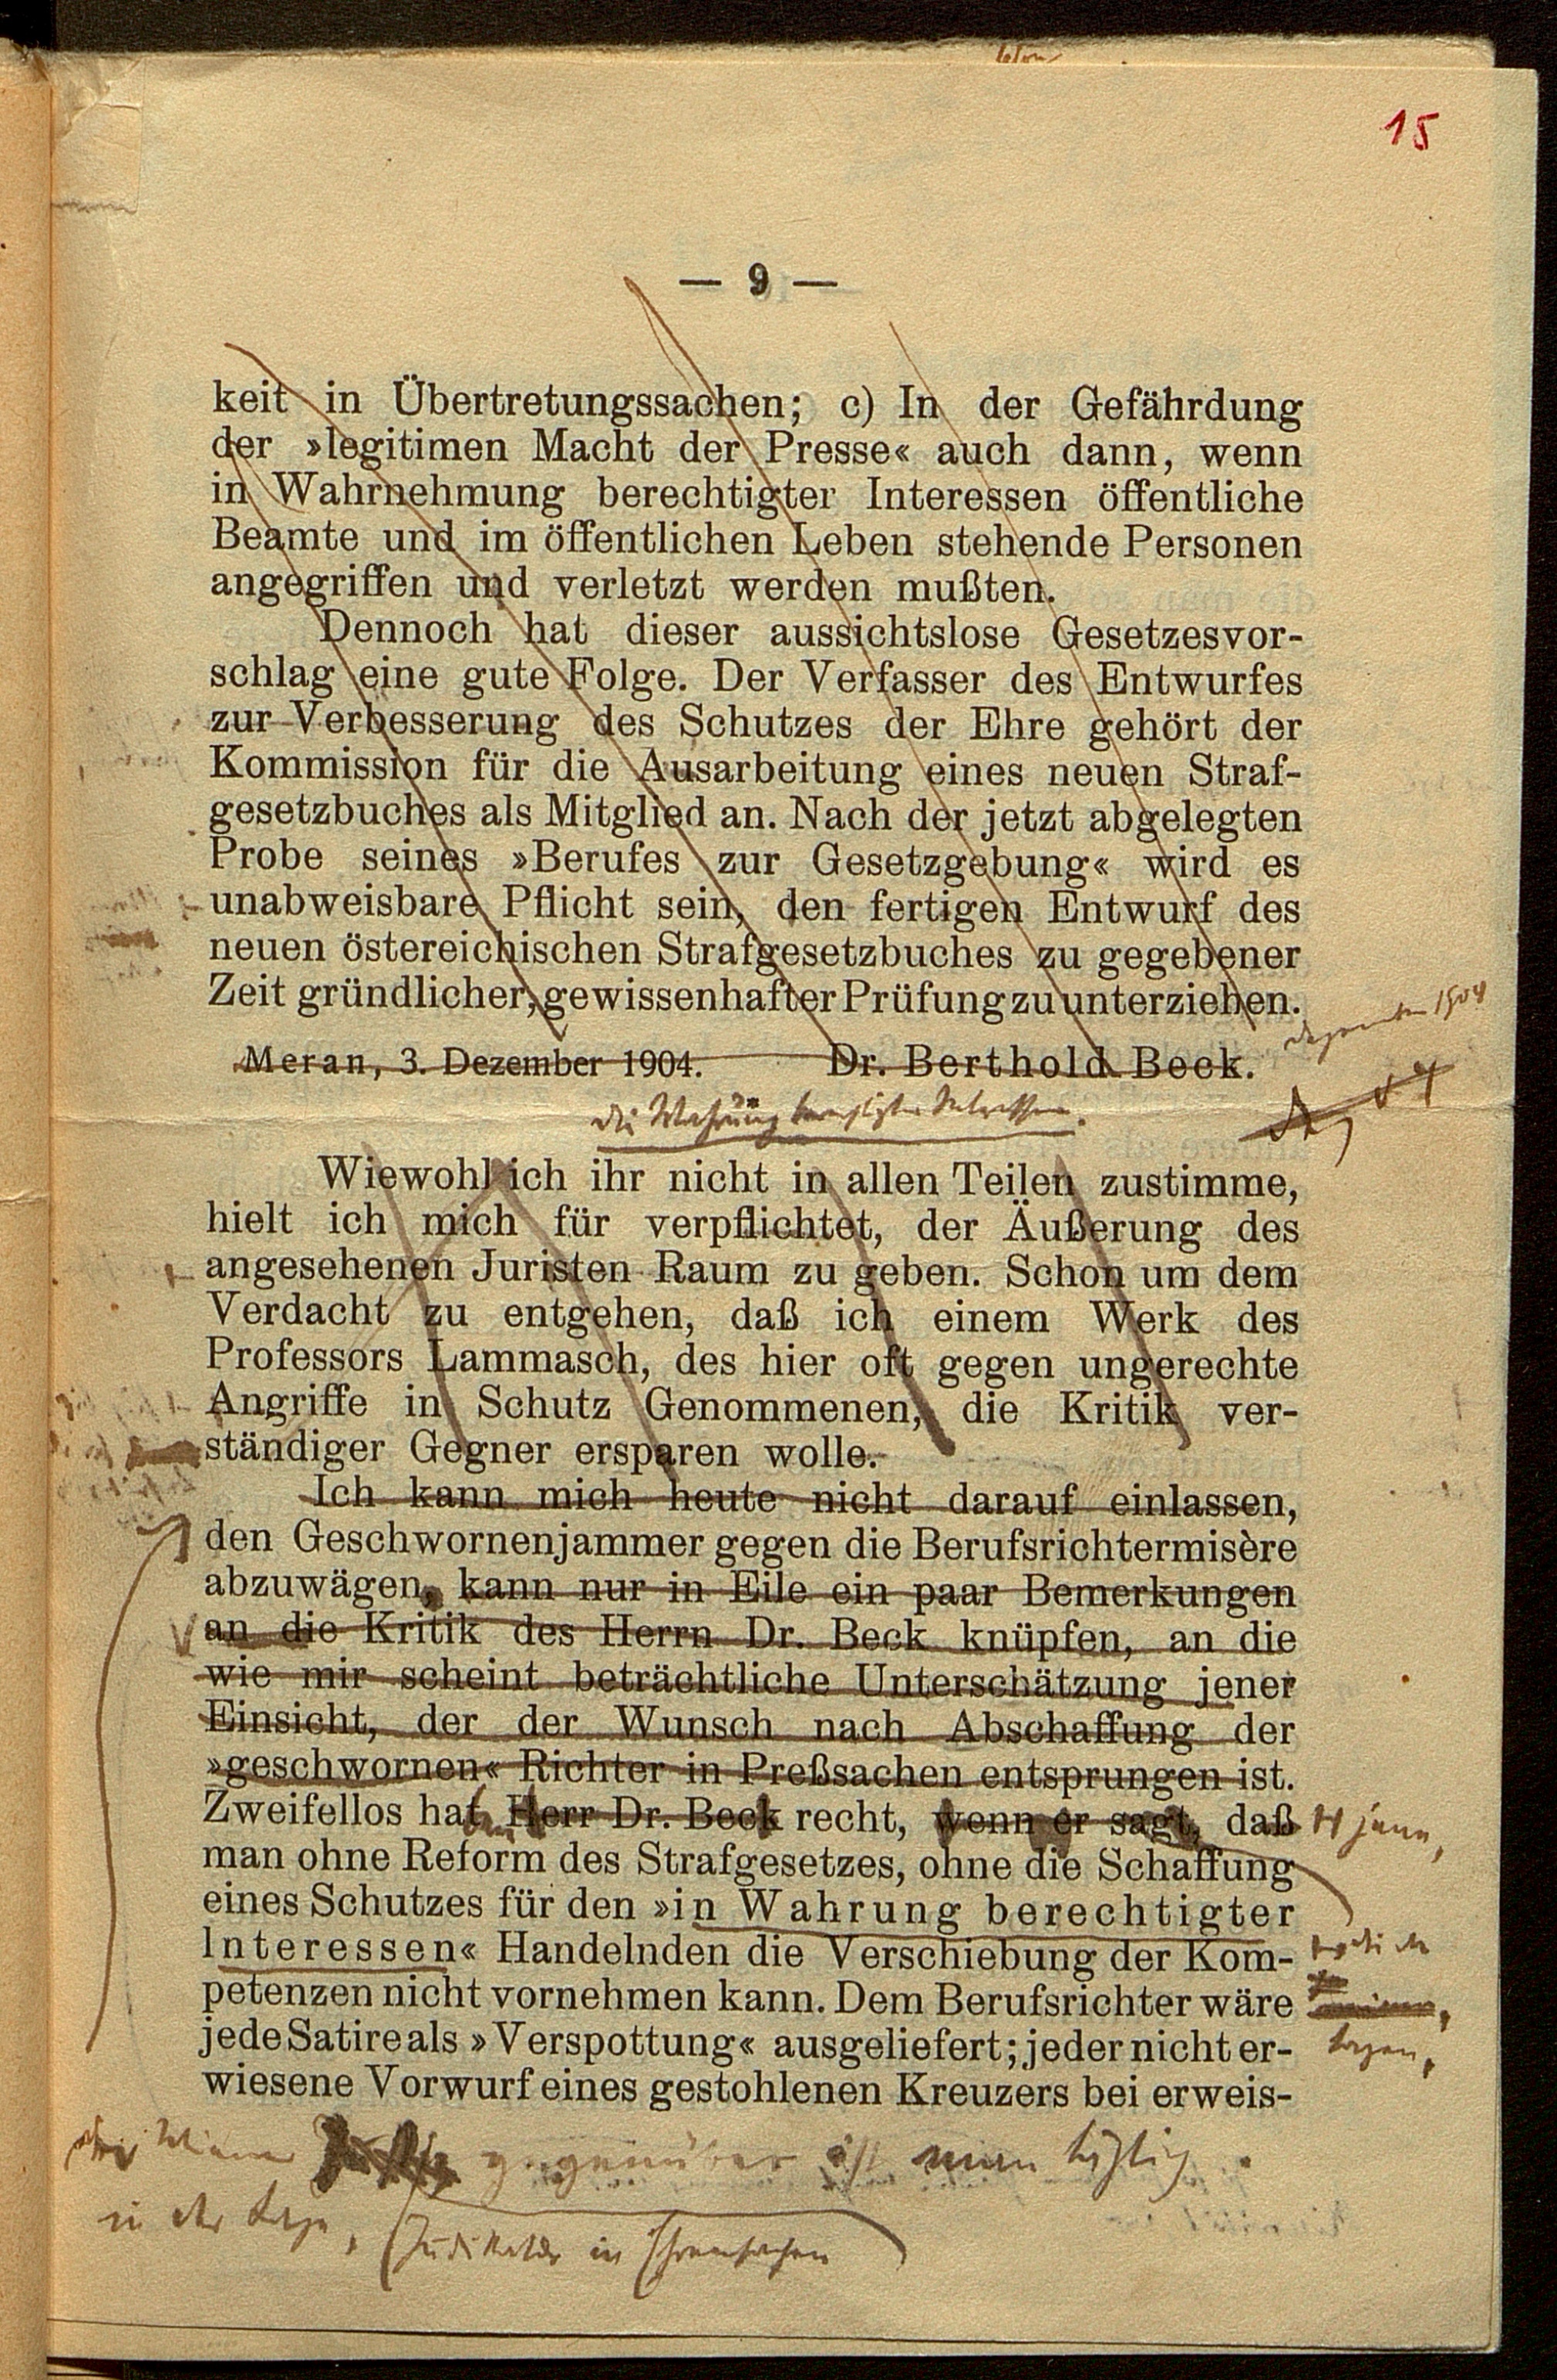 15
— 9 —
keit in Übertretungssachen; c) In der Gefährdung
der »legitimen Macht der Presse« auch dann, wenn
in Wahrnehmung berechtigter Interessen öffentliche
Beamte und im öffentlichen Leben stehende Personen
angegriffen und verletzt werden mußten.
Dennoch hat dieser aussichtslose Gesetzesvor-
schlag eine gute Folge. Der Verfasser des Entwurfes
zur Verbesserung des Schutzes der Ehre gehört der
Kommission für die Ausarbeitung eines neuen Straf-
gesetzbuches als Mitglied an. Nach der jetzt abgelegten
Probe seines »Berufes zur Gesetzgebung« wird es
unabweisbare Pflicht sein, den fertigen Entwurf des
neuen östereichischen Strafgesetzbuches zu gegebener
Zeit gründlicher, gewissenhafter Prüfung zu unterziehen.
Dezember 1904
Meran, 3. Dezember 1904. Dr. Berthold Beck.
Die Wahrung berechtigter Interessen.
Wiewohl ich ihr nicht in allen Teilen zustimme,
hielt ich mich für verpflichtet, der Äußerung des
angesehenen Juristen Raum zu geben. Schon um dem
Verdacht zu entgehen, daß ich einem Werk des
Professors Lammasch, des hier oft gegen ungerechte
Angriffe in Schutz Genommenen, die Kritik ver-
ständiger Gegner ersparen wolle.
Ich kann mich heute nicht darauf einlassen,
den Geschwornenjammer gegen die Berufsrichtermisère
abzuwägen, kann nur in Eile ein paar Bemerkungen
an die Kritik des Herrn Dr. Beck knüpfen, an die
wie mir scheint beträchtliche Unterschätzung jener
Einsicht, der der Wunsch nach Abschaffung der
»geschwornen« Richter in Preßsachen entsprungen ist.
Zweifellos hat Herr Dr. Beck recht, wenn er sagt, daß
man ohne Reform des Strafgesetzes, ohne die Schaffung
eines Schutzes für den »in Wahrung berechtigter
Interessen« Handelnden die Verschiebung der Kom-
petenzen nicht vornehmen kann. Dem Berufsrichter wäre
jede Satire als »Verspottung« ausgeliefert; jeder nicht er-
wiesene Vorwurf eines gestohlenen Kreuzers bei erweis-
gegenüber ist man täglich
in der Lage, Judikatur in Ehrensachen